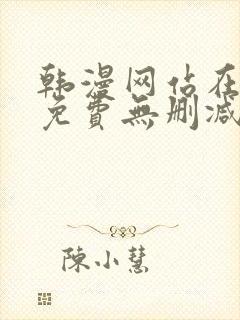 韩漫网站在
免費無删减
陳小慧